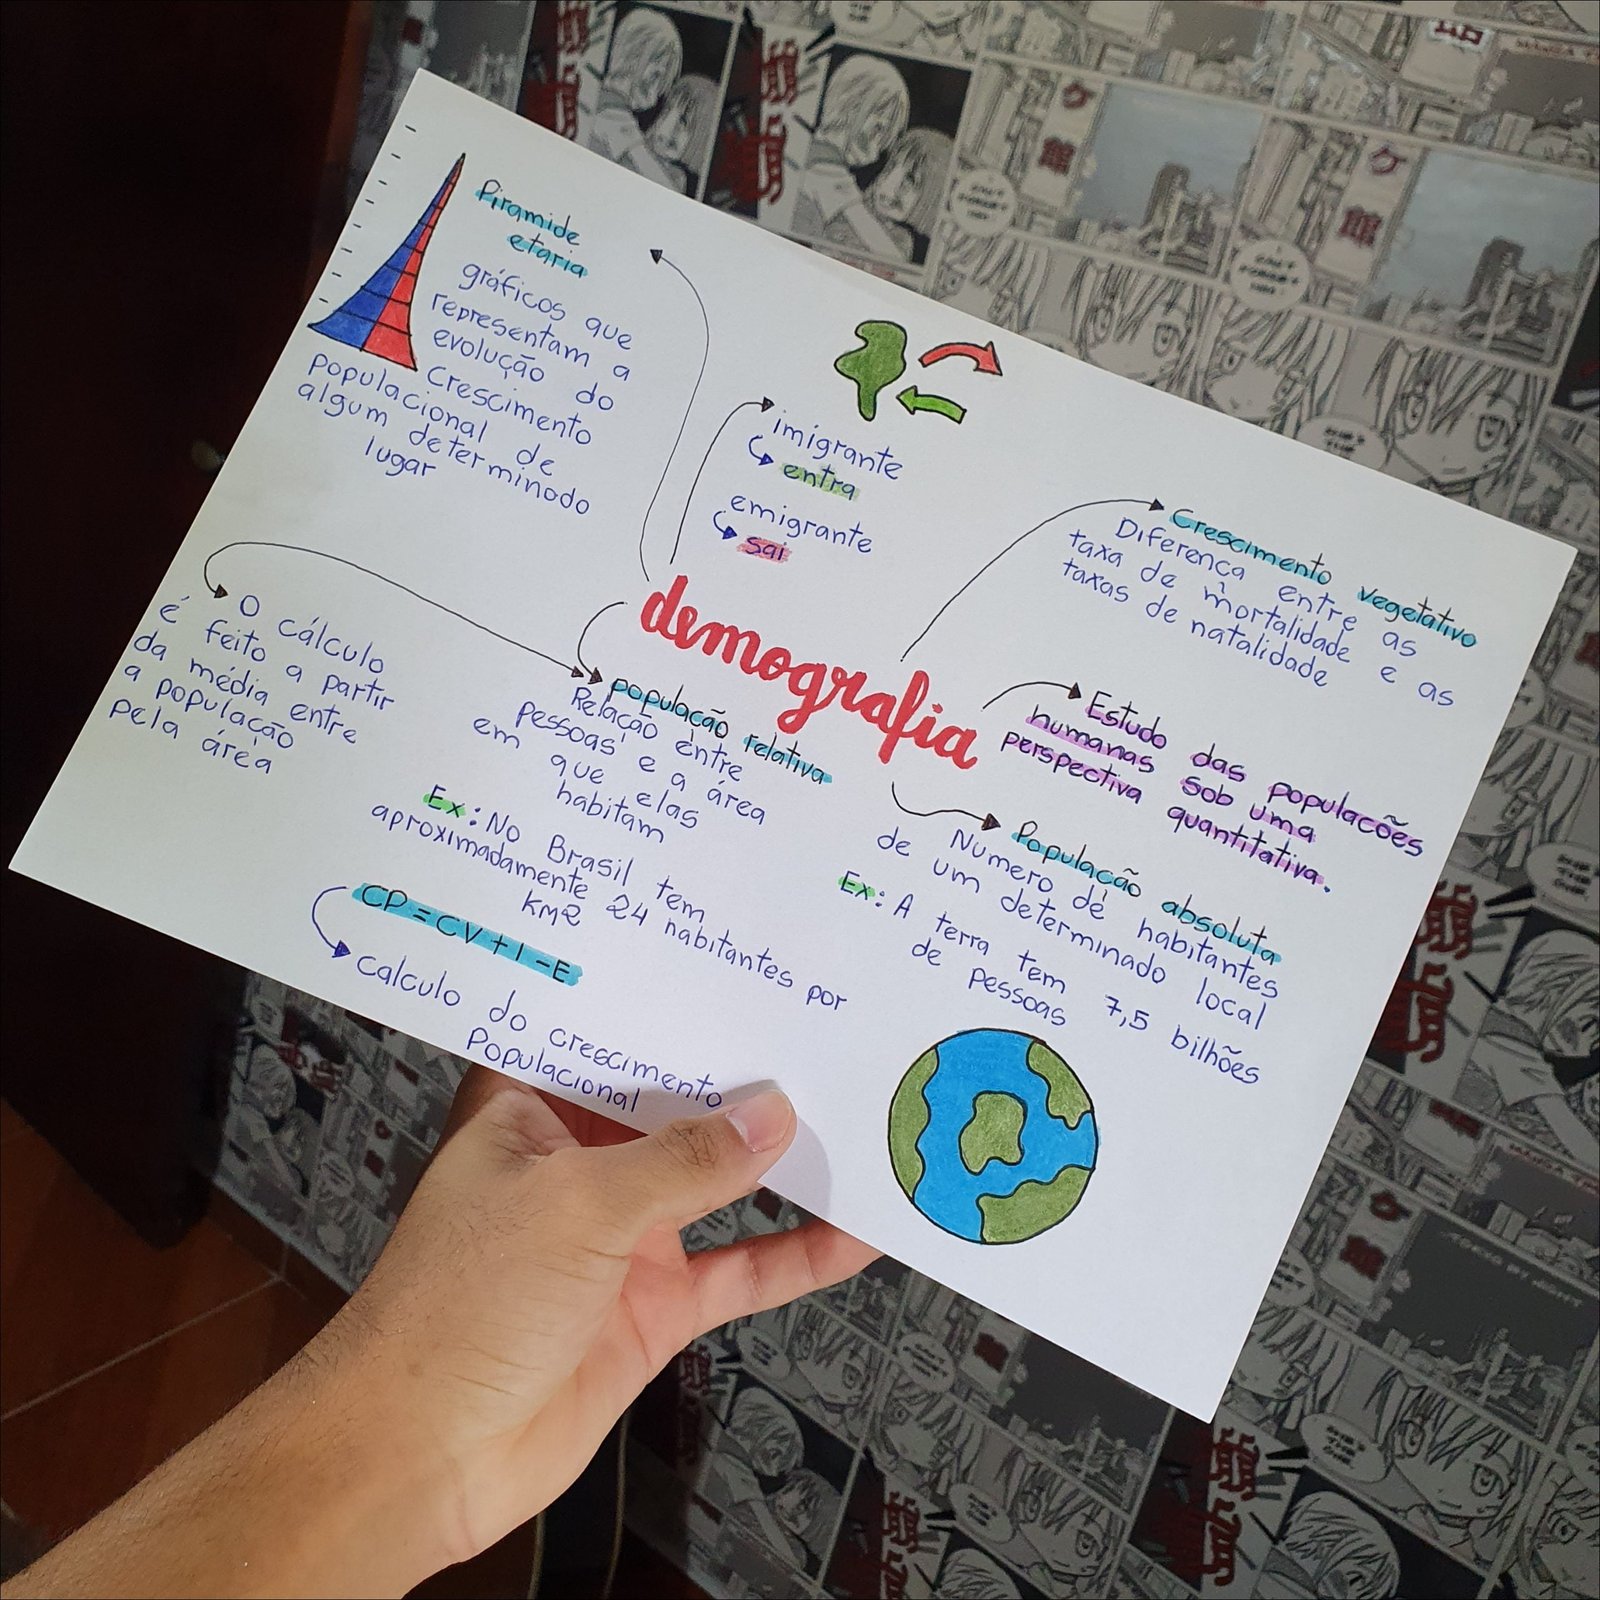 Piramide
etaria
gráficos que
representam a
evolução do
crescimento
populacional de
algum determinodo
lugar
imigrante
entra
emigrante
sai
Crescimento vegetativo
Diferença entre as
taxa de mortalidade e as
taxas de natalidade
demografia
Estudo das populacões
humanas sob uma
perspectiva quantitativa.
O cálculo
é feito a partir
da média entre
a população
pela área
população relativa
Relação entre
pessoas e a área
em que elas
habitam
Ex: No Brasil tem
aproximadamente 24 habitantes por
KM2
População absoluta
Numero de habitantes
de um determinado local
Ex: A terra tem 7,5 bilhões
de pessoas
CP = CV + I - E
calculo do crescimento
Populacional